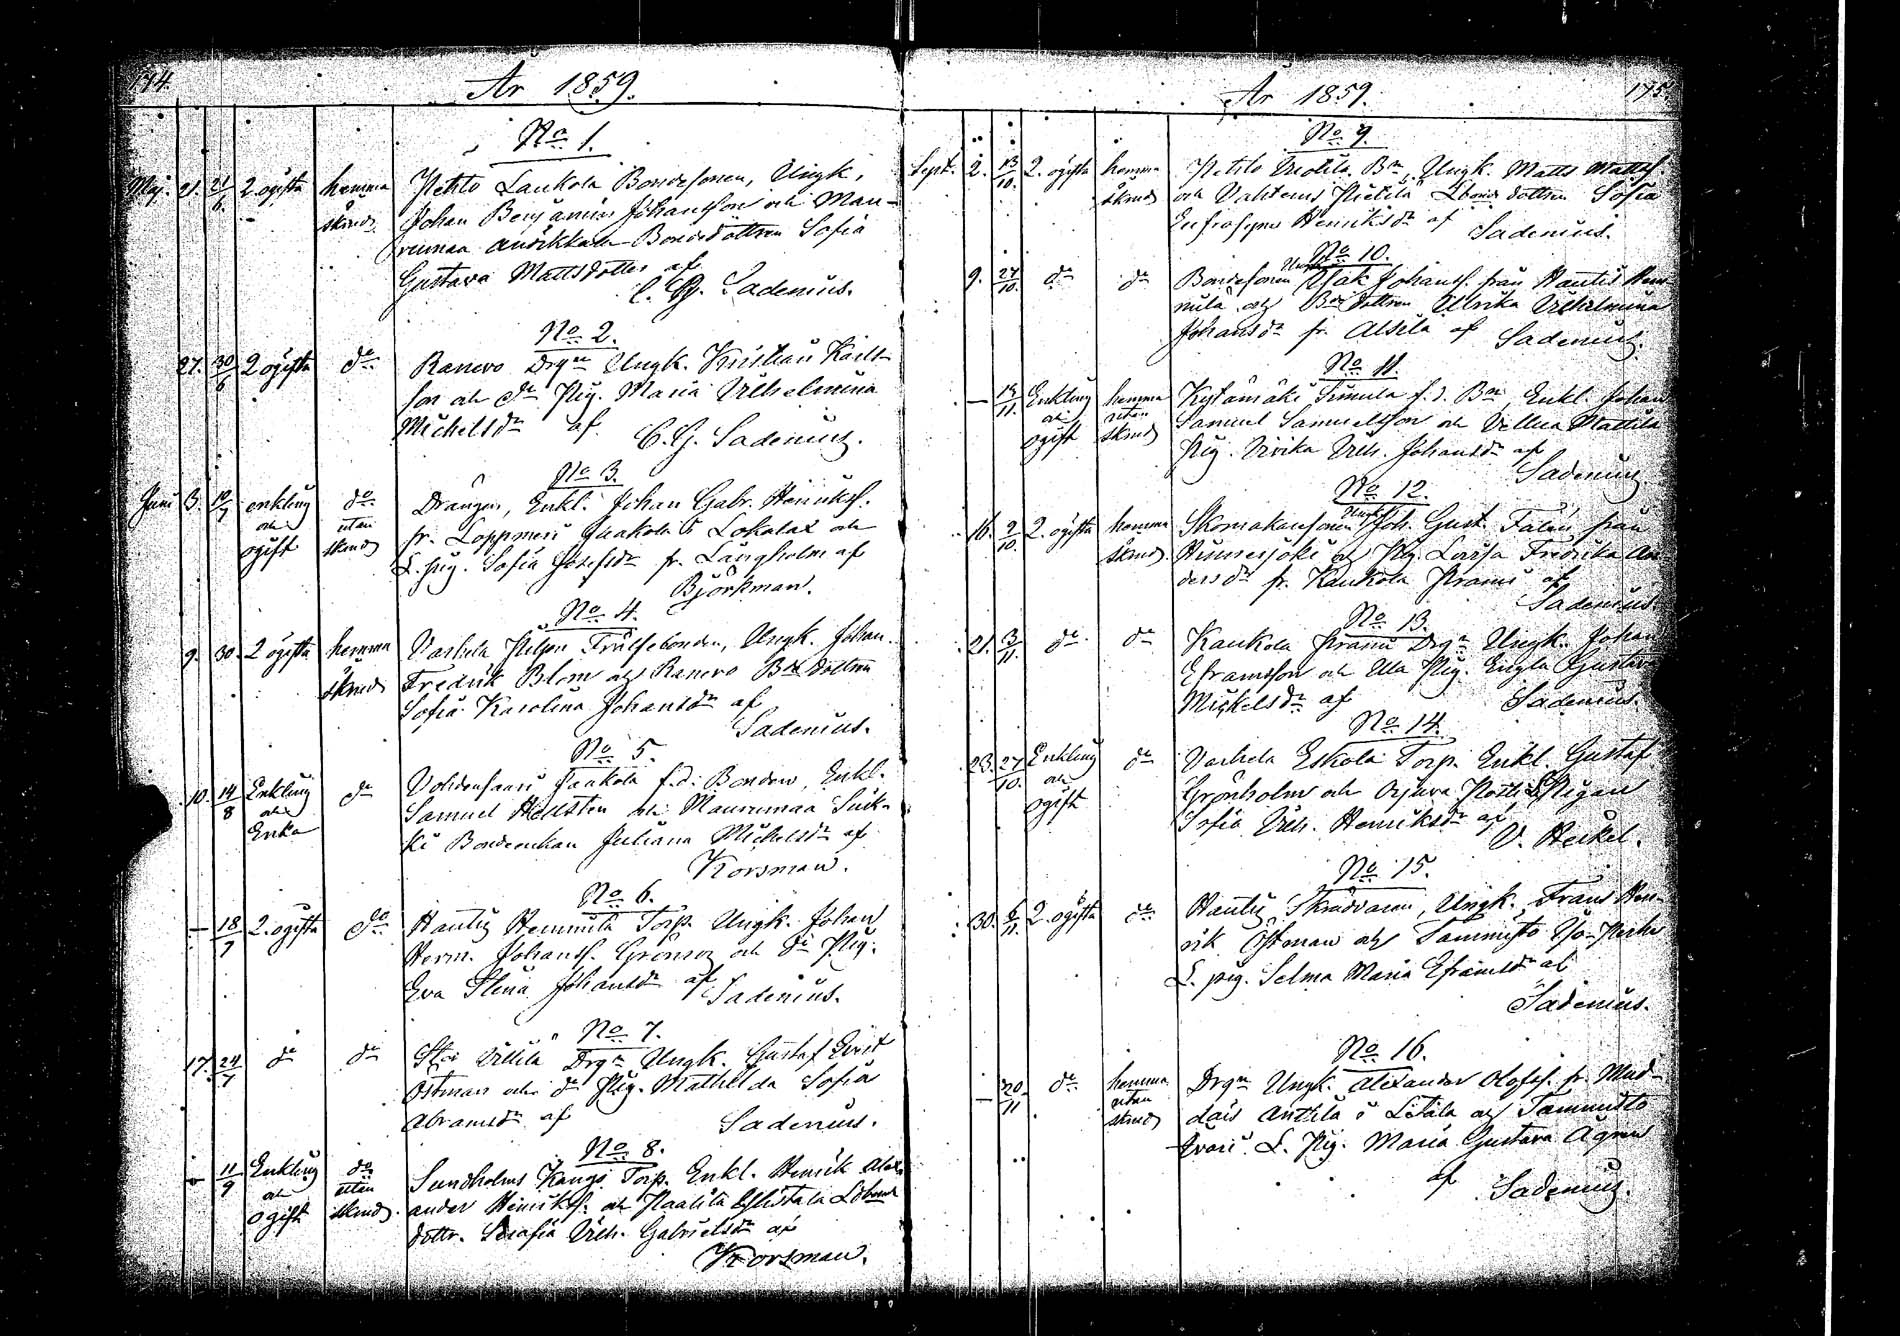 174.
År 1859.
No 1.
Maj. 21. 21/6. 2 ogifta hemma skrud. Pehto Laukola Bondesonen, Ungk.
Johan Benjamin Johansson och Mau-
rumaa Anikkala Bondedottren Sofia
Gustava Mattsdotter af
C. G. Sadenius.
No 2.
27. 30/6 2 ogifta do Ranevo Drgn Ungk. Kristian Karls-
son och do Pig. Maria Vilhelmina
Michelsdr af
C. G. Sadenius.
No 3.
Juni 3. 10/7 enkling och ogift do utan skrud Drängen, Enkl. Johan Gabr. Henriksf.
fr. Loppmeri Jaakola i Lokalax och
L. pig. Sofia Josefsdr fr. Langholm af
Björkman.
No 4.
9. 30. 2 ogifta hemma skrud Varhela Frälsebonden, Ungk. Johan
Fredrik Blom och Ranevo Bde dottren
Sofia Karolina Johansdr af
Sadenius.
No 5.
10. 14/8 Enkling och Enka do Vohdensaari Jaakola f.d. Bonden, Enkl.
Samuel Hellsten och Maurumaa Suik-
ki Bondeenkan Juliana Michelsdr af
Korsman.
No 6.
— 18/7 2. ogifta do Hautis Hemmila Torp. Ungk. Johan
Herm. Johansf. Grönroos och do Pig.
Eva Stina Johansdr af
Sadenius.
No 7.
17. 24/7 do do Villilä Drgn Ungk. Gustaf Evert
Ostman och do Pig. Mathilda Sofia
Abramsdr af
Sadenius.
No 8.
— 11/9 Enkling och ogift do utan skrud. Sundholms Kangs Torp. Enkl. Henrik Alex-
ander Henriksf. och Haalila
dottr. Serafia Vilh. Gabrielsdr af
Korsman.
175.
År 1859.
No 9.
Sept. 2. 13/10. 2. ogifta hemma skrud Pehto Bn, Ungk. Matts Mattsf.
och Vahterus Pietilä dottren Sofia
Eufrosyna Henriksdr af
Sadenius.
No 10.
9. 27/10. do do Bondesonen Ungk. Isak Johansf. från Hautis Hem-
milä och Bde dottren Ulrika Vilhelmina
Johansdr fr. Alsila af
Sadenius.
No 11.
— 13/11. Enkling och ogift hemma utan skrud Kylämäki Simula f.d. Bn Enkl. Johan
Samuel Samuelsson och Vellua Mattila
Pig. Vivika Vilh. Johansdr af
Sadenius
No 12.
16. 2/10. 2. ogifta hemma skrud. Skomakaresonen Ungk. Joh. Gust. Falén från
Hinnerjoki och Pig. Lovisa Fredrika An-
dersdr fr. Kaukola Prami af
Sadenius.
No 13.
21. 3/11. do do Kaukola Prami Drgn Ungk. Johan
Eframsson och Pig. Engla Gustava
Mickelsdr af
Sadenius.
No 14.
23. 27/10. Enkling och ogift do Varhela Eskola Torp. Enkl. Gustaf
Grönholm och Pigan
Sofia Vilh. Henriksdr af
V. Heikel.
No 15.
30. 6/11. 2. ogifta do Hautis Skräddaren, Ungk. Frans Hen-
rik Ostman och Tammisto
L. pig. Selma Maria Eframsdr af
Sadenius.
No 16.
— 20/11 do hemma utan skrud Drgn Ungk. Alexander Olofsf. fr. Mud-
dais Anttila i Letala och Tammisto
Ivari L. Pig. Maria Gustava Ågren
af Sadenius.